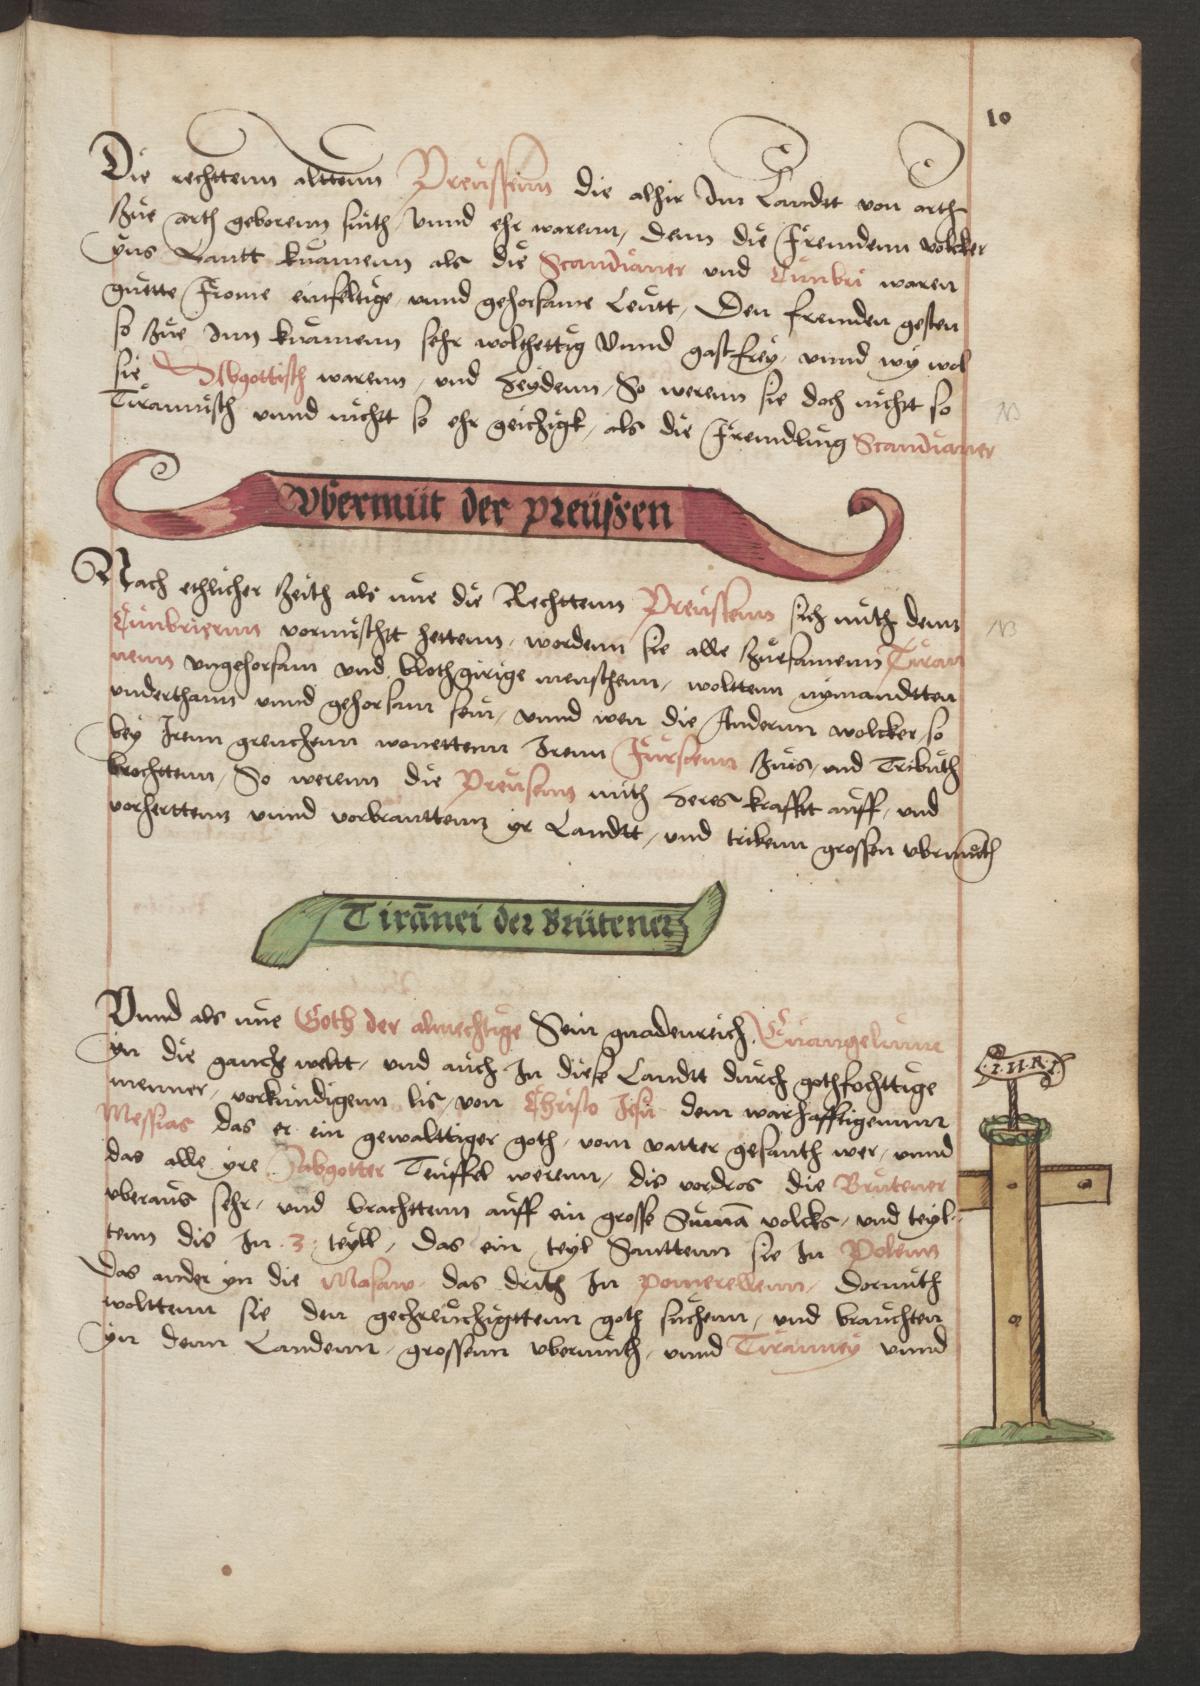 10
Die rechttenn alttenn Preussenn die alhir Inn Landtt von arth
Zue arth geborenn sinth, Vnnd ehr warenn, denn die Fremdenn volcker
yns Lantt kuamenn als die Scandianer vnd Cimbri waren
guttte Frome einfeltige vnnd gehorsame Leutt, Den fremden gesten
so zue Inn kuamenn sehr wolthettig Vnnd gastfrey, vnnd wy wol
sie Abgottisch warenn, vnd Heydenn, So werenn sie doch nicht so
Tirannisch vnnd nicht so ehr geichigk, als die Fremdling Scandianer
NB
Vbermüt der preüssen
Nach ethlicher Zeith als nue die Rechttenn Preussenn sich mith denn
Cimbriernn vormischt hettenn, wordenn sie alle Zuesamenn Tiran
nenn vngehorsam vnd blothgirige menschenn, wolttenn nymandtten
NB
vnderthann vnnd gehorsam sein, vnnd wen die Andernn volcker so
bey Irenn grenchenn wonettenn Irenn Fürstenn Zins, vnd Tributh
brochttenn, So werenn die Preusenn mith Heres krafft auff, vnd
vorherttenn vnnd vorbranttenn yr Landtt, vnd tribenn grossen vbrmuth
Tirāñei der Brütener
Vnnd als nue Goth der almechtige Sein gnadenreich Euangelium
yn die ganche weltt, vnd auch In diese Landtt durch gothforchttige
menner, vorkundigenn lis, von Christo Jesu dem warhafftigennn
Messias das er ein gewalttiger goth, vom vatter gesanth wer, vnnd
das alle yre Abgotter Teuffel werenn, dis vordros die Brutener
vberaus sehr, vnd brachttenn auff ein grosse Sumā volcks, vnd teyl-
tenn dis In .3. teyll, das ein teyl Santtenn sie In Polenn
das ander yn die Masaw, das drith In Pomerellenn, dormith
wolttenn sie den gechreuchigttenn goth suchenn, vnd brauchten
yn denn Landenn, grossenn vbermuth, vnnd Tiranney vnnd
.I.N.R.I.